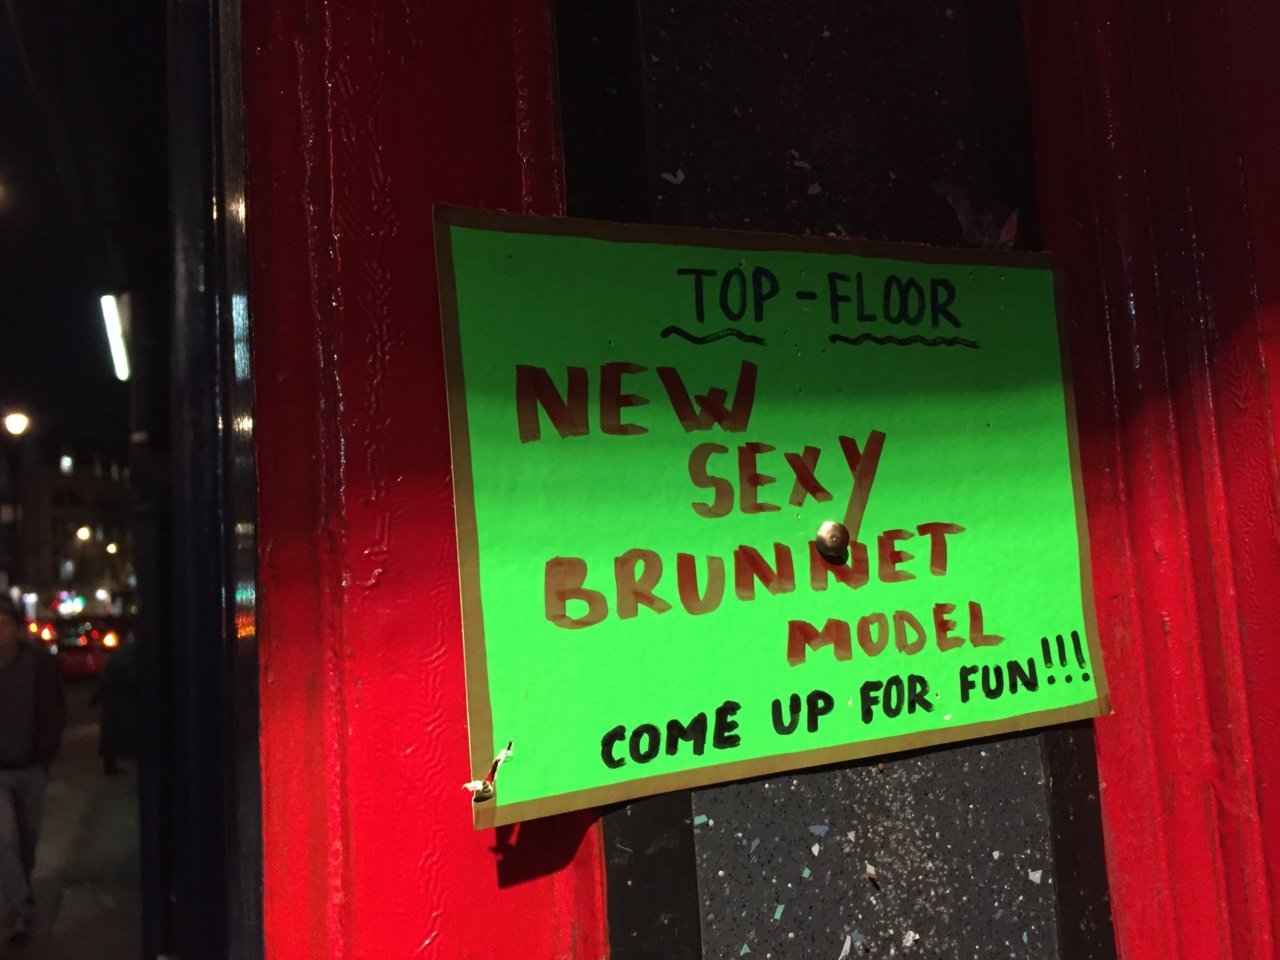 TOP-FLOOR
NEW
SEXY
BRUNNET
MODEL
COME UP FOR FUN!!!